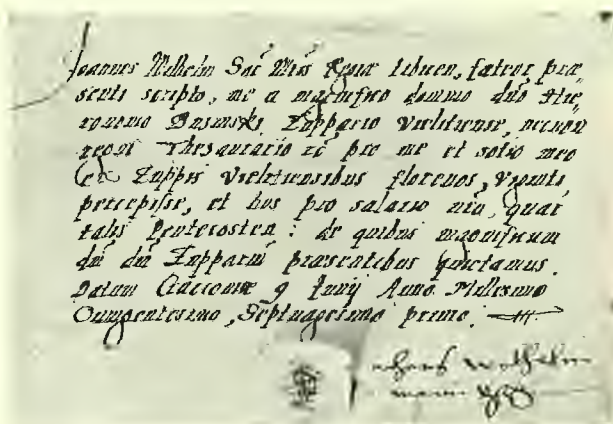 Joannes Wilhelm Sac̄ Mtis Regiæ tibicen, fateor præ
senti scripto, me a magnifico domino dño Hie
ronimo Businski, Zuppario Vielitiense, necnon
Thesaurario &c̄ pro me et sotio meo
ex Zuppis Vielitiensibus florenos, viginti,
percepisse, et hos pro salario quar
talis Pentecosten: de quibus magnificum
dm̄ dm̄ Zupparium præsentibus quietamus.
Datum Cracoviæ 9 Junij Anno Millesimo
Quingentesimo, Septuagesimo primo.
hans wilhelm